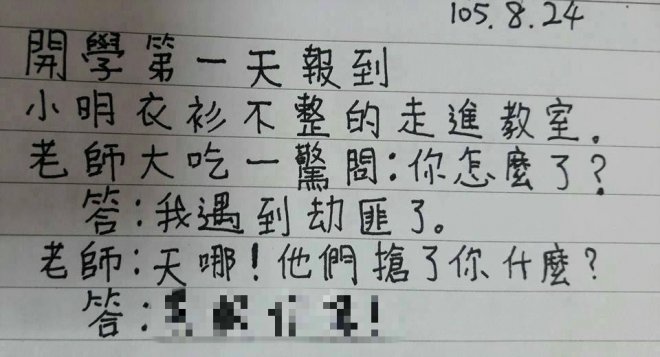 105.8.24
開學第一天報到
小明衣衫不整的走進教室.
老師大吃一驚問:你怎麼了?
答:我遇到劫匪了。
老師:天哪!他們搶了你什麼?
答: